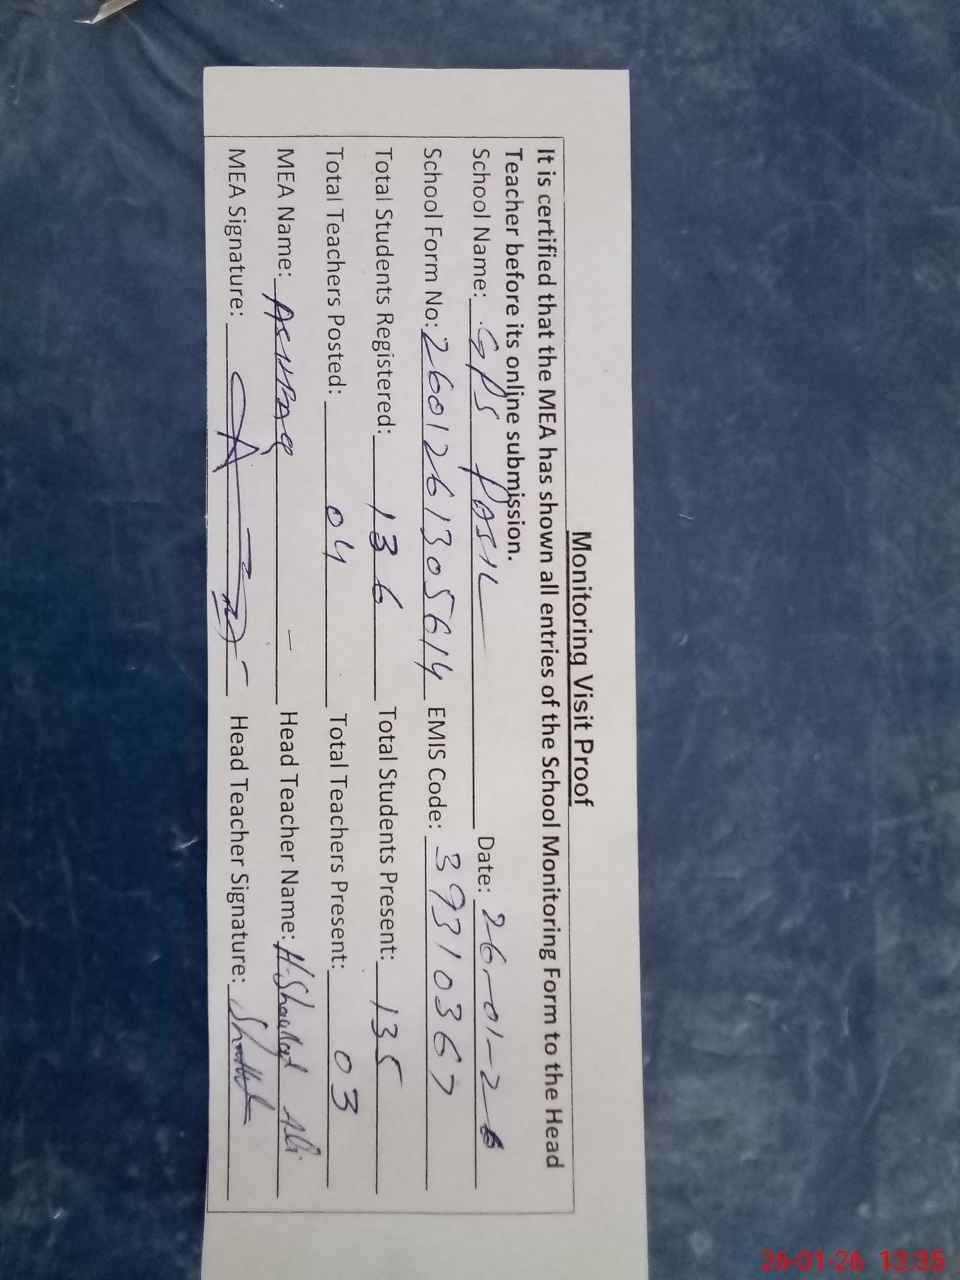 Monitoring Visit Proof
It is certified that the MEA has shown all entries of the School Monitoring Form to the Head
Teacher before its online submission.
School Name: GPS PASIL Date: 26-01-26
School Form No: 26012613056 14 EMIS Code: 39310367
Total Students Registered: 136 Total Students Present: 135
Total Teachers Posted: 04 Total Teachers Present: 03
MEA Name: ASHFAQ Head Teacher Name: Ali
MEA Signature: Head Teacher Signature:
26-01-26 13:35